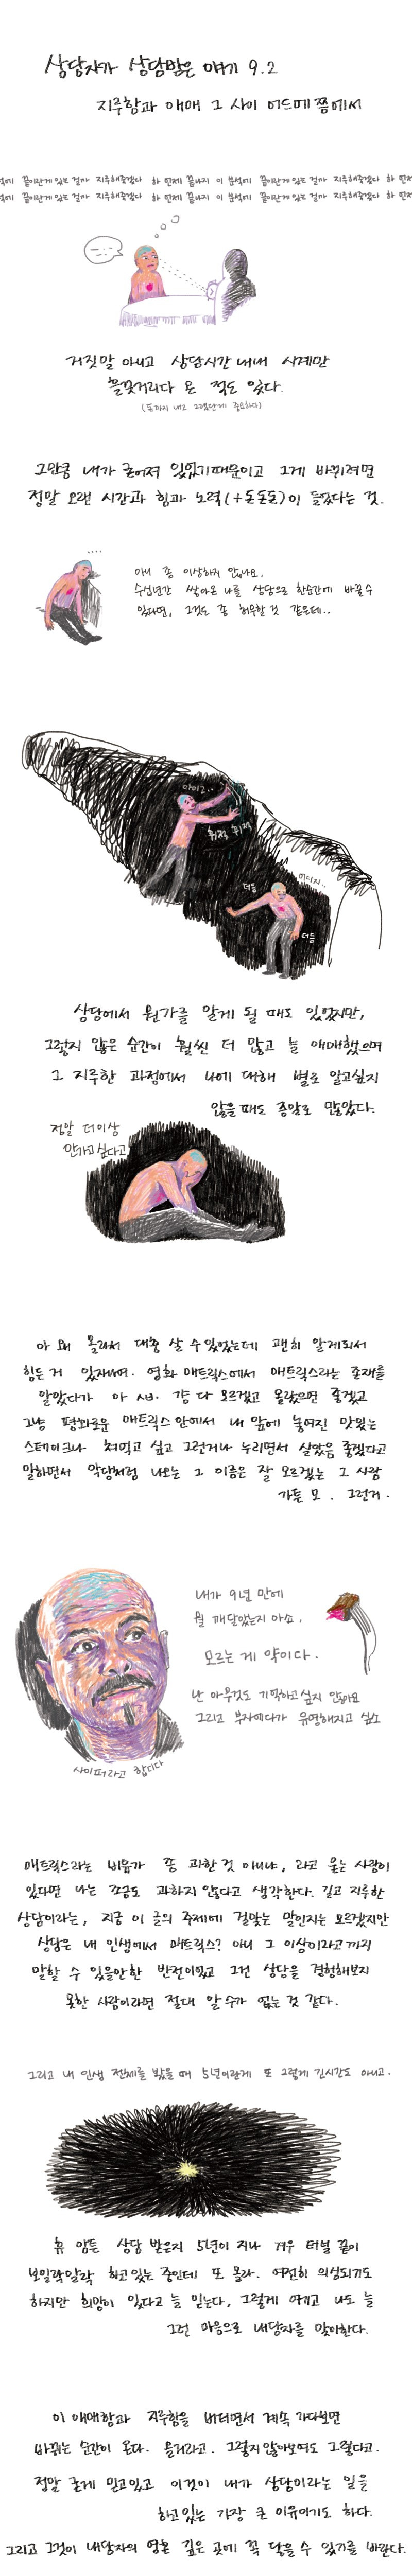 상담자가 상담받은 얘기 9.2
지루함과 애매 그 사이 어드메 쯤에서
석에 끝이란게 있는 걸까 지루해죽겠다 하 언제 끝나지 이 분석에 끝이란게 있는 걸까 지루해죽겠다 하 언저
석에 끝이란게 있는 걸까 지루해죽겠다 하 언제 끝나지 이 분석에 끝이란게 있는 걸까 지루해죽겠다 하 언저
거짓말 아니고 상담시간 내내 시계만
흘끗거리다 온 적도 있다.
(돈까지 내고 그랬단게 중요하다)
그만큼 내가 굳어져 있었기때문이고 그게 바뀌려면
정말 오랜 시간과 힘과 노력(+돈돈돈)이 들었다는 것.
....
아니 좀 이상하지 않나요.
수십년간 쌓아온 나를 상담으로 한순간에 바꿀 수
있다면, 그것도 좀 허무할 것 같은데..
아이고..
휘적 휘적
더듬
어디지..
더듬
상담에서 뭔가를 알게 될 때도 있었지만,
그렇지 않은 순간이 훨씬 더 많고 늘 애매했으며
그 지루한 과정에서 나에 대해 별로 알고싶지
않을 때도 정말로 많았다.
정말 더이상
안가고싶다고
아 왜 몰라서 대충 살 수 있었는데 괜히 알게되서
힘든 거 있자나여. 영화 매트릭스에서 매트릭스라는 존재를
알았다가 아 시바. 걍 다 모르겠고 몰랐으면 좋겠고
그냥 평화로운 매트릭스 안에서 내 앞에 놓여진 맛있는
스테이크나 쳐먹고 싶고 그런거나 누리면서 살았음 좋겠다고
말하면서 악당처럼 나오는 그 이름은 잘 모르겠는 그 사람
가튼 모. 그런거.
내가 9년 만에
뭘 깨달았는지 아쇼.
모르는 게 약이다.
난 아무것도 기억하고싶지 않아요
그리고 부자에다가 유명해지고 싶소
사이퍼라고 합디다
매트릭스라는 비유가 좀 과한 것 아니냐, 라고 묻는 사람이
있다면 나는 조금도 과하지 않다고 생각한다. 길고 지루한
상담이라는, 지금 이 글의 주제에 걸맞는 말인지는 모르겠지만
상담은 내 인생에서 매트릭스? 아니 그 이상이라고까지
말할 수 있을만한 반전이었고 그건 상담을 경험해보지
못한 사람이라면 절대 알 수가 없는 것 같다.
그리고 내 인생 전체를 봤을 때 5년이란게 또 그렇게 긴시간도 아니고.
휴 암튼 상담 받은지 5년이 지나 겨우 터널 끝이
보일락말락 하고있는 중인데 또 몰라. 여전히 의심되기도
하지만 희망이 있다고 늘 믿는다, 그렇게 여기고 나도 늘
그런 마음으로 내담자를 맞이한다.
이 애매함과 지루함을 버티면서 계속 가다보면
바뀌는 순간이 온다. 믿거라고. 그렇지않아보여도 그렇다고.
정말 굳게 믿고있고 이것이 내가 상담이라는 일을
하고있는 가장 큰 이유이기도 하다.
그리고 그것이 내담자의 영혼 깊은 곳에 꼭 닿을 수 있기를 바란다.